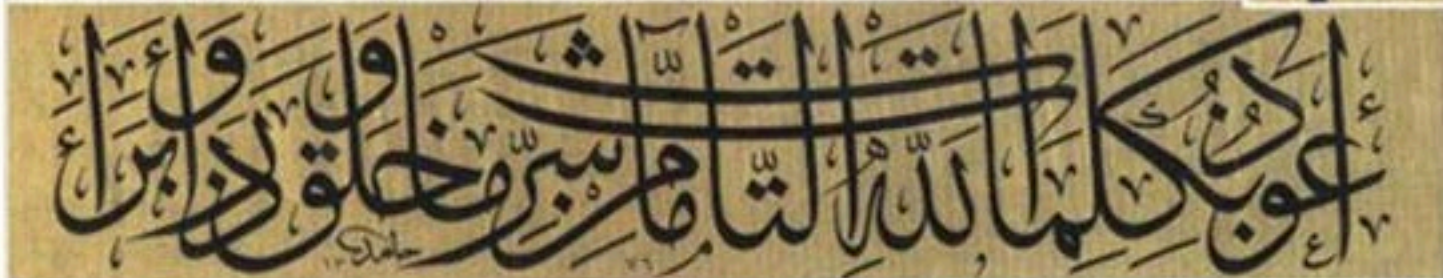 أَعُوذُ بِكَلِمَاتِ اللّٰهِ التَّامَّاتِ مِنْ شَرِّ مَا خَلَقَ وَذَرَأَ وَبَرَأَ